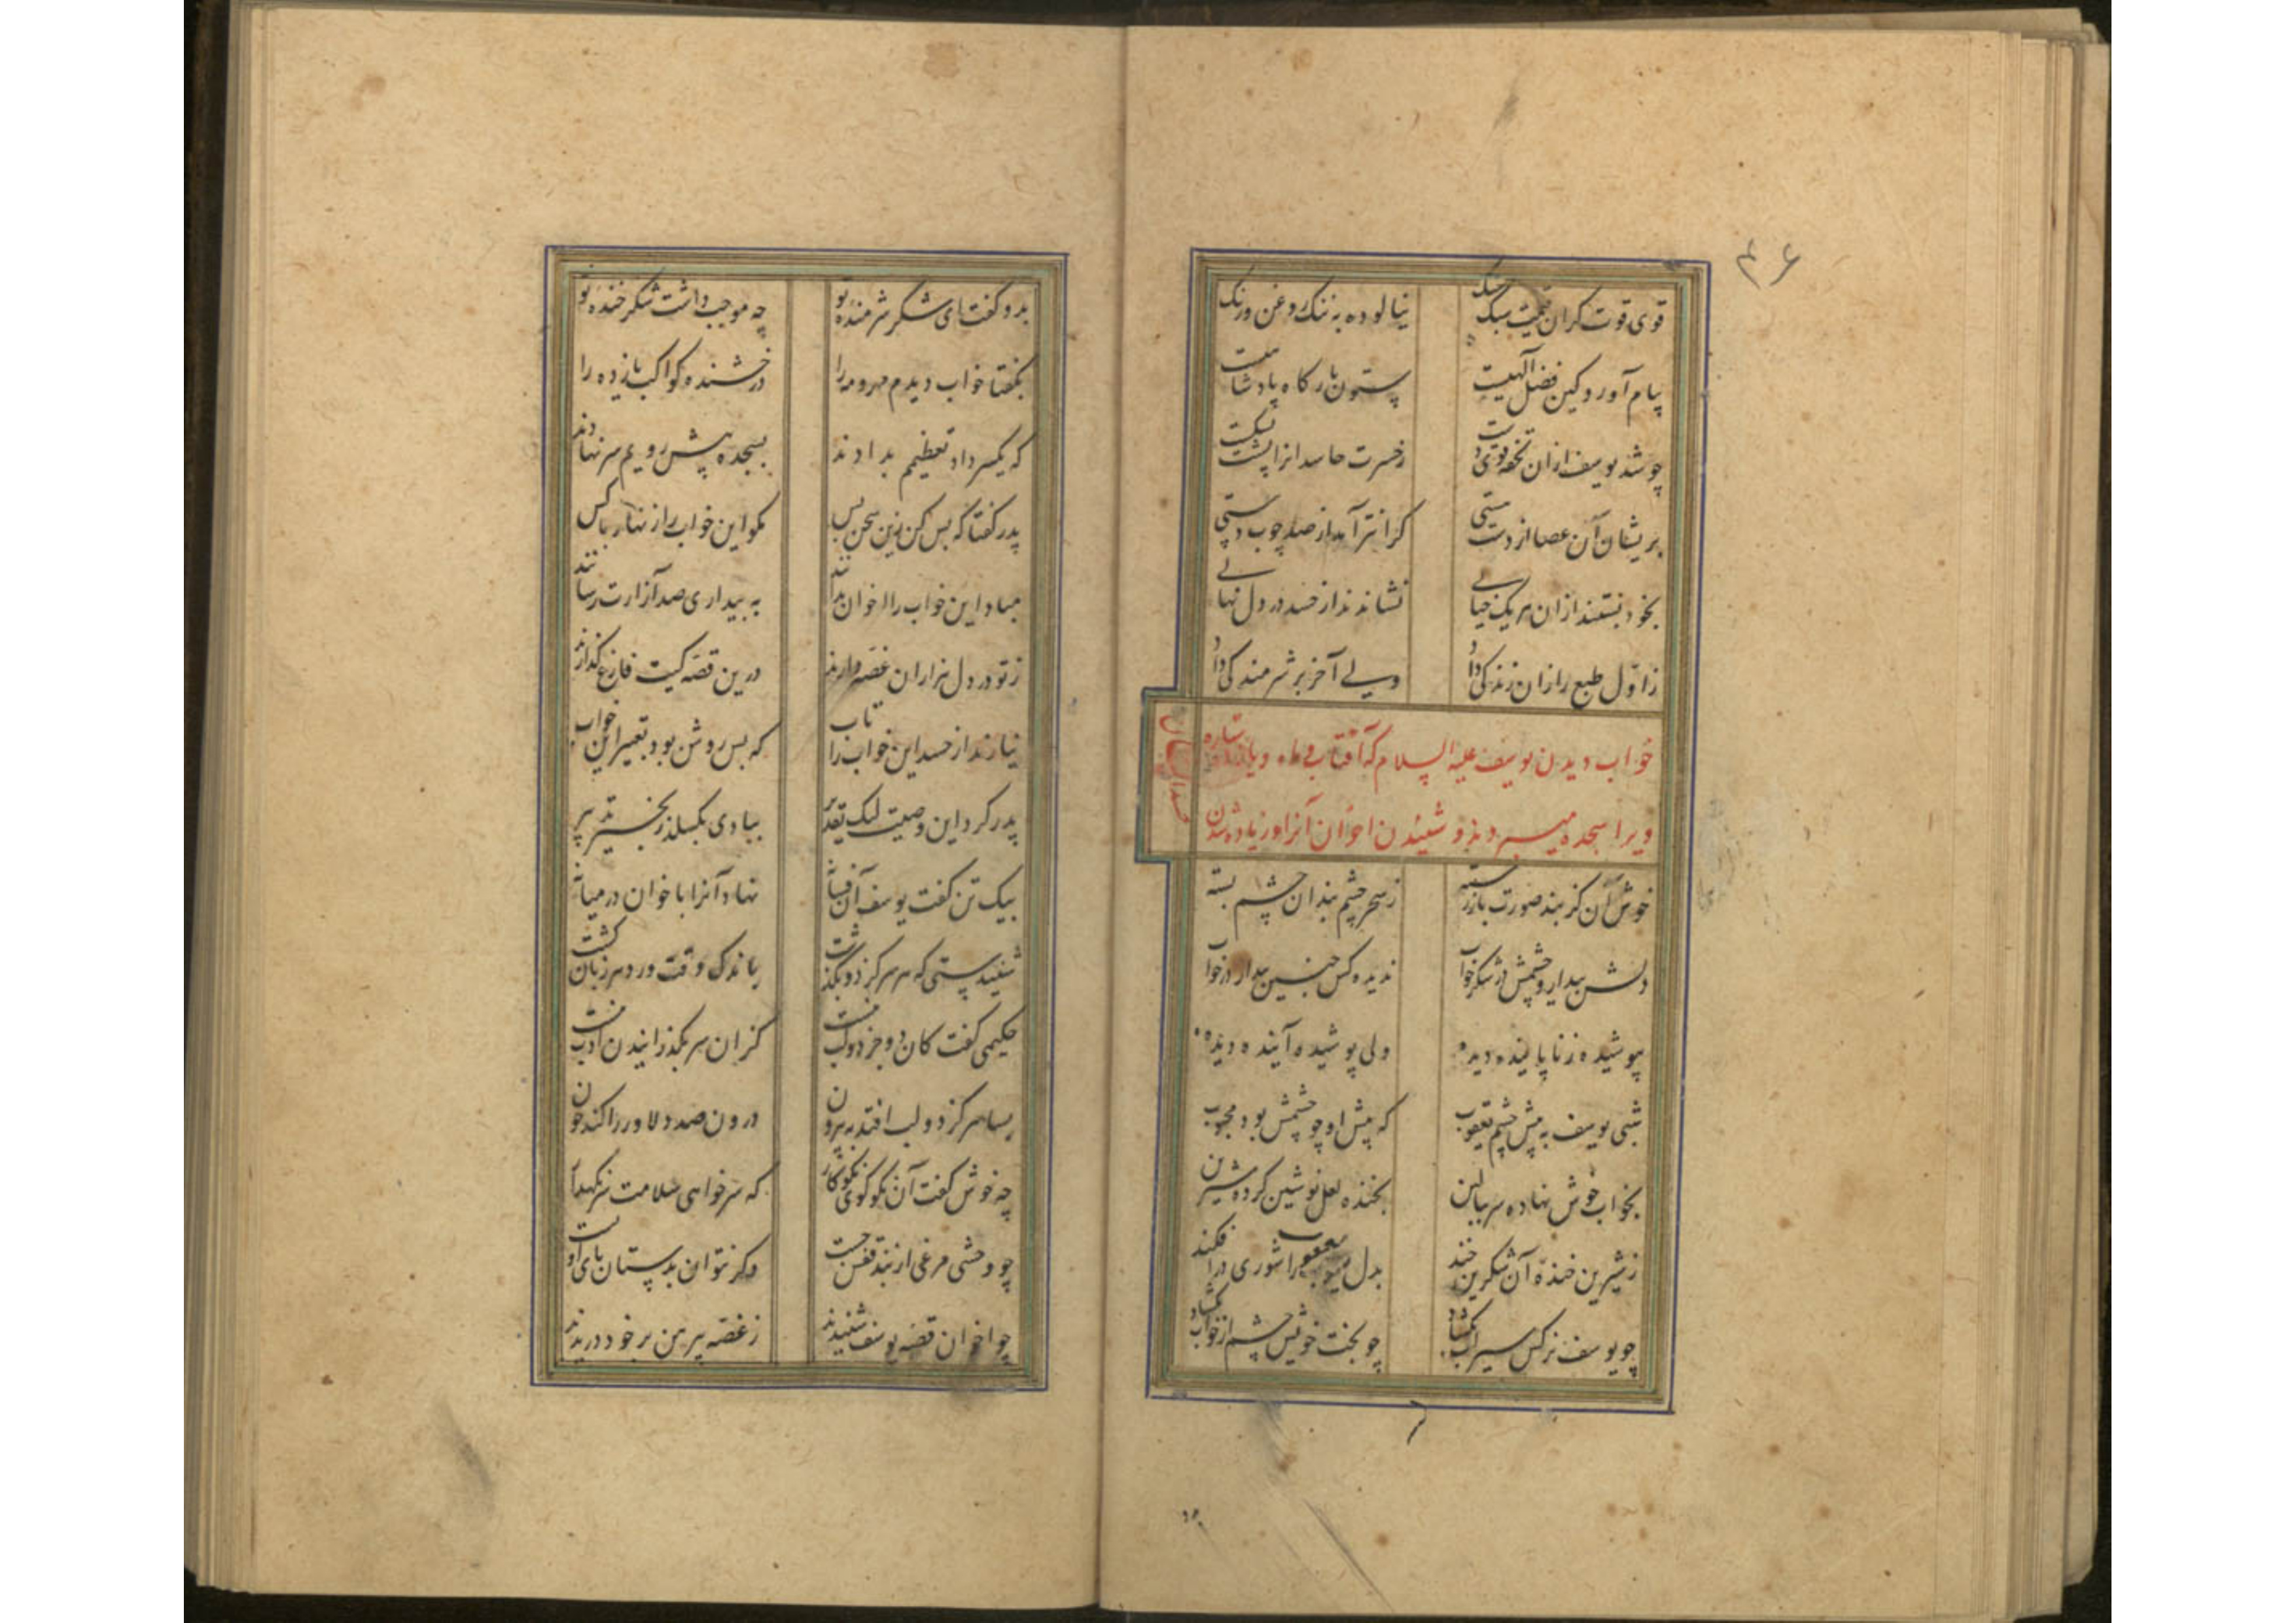 ۴۶
قوی قوت گران قیمت سبک سنگ نیالوده به ننگ روغن و رنگ
پیام آورد کین فضل الهیست ستون بارگاه پادشاهیست
چو شد یوسف ازان تحفه قوی دست ز حسرت حاسدانرا پشت بشکست
بریشان آن عصا از دست مستی گرانتر آمد از صد چوب دستی
بخود بستند ازان هر یک خیالی نشاندند از حسد در دل نهالی
ز اول طبع را زان زندگی داد ولی آخر بر شرمندگی داد
خواب دیدن یوسف علیه السلام که آفتاب و ماه و یازده ستاره
ویرا سجده میبردند و شنیدن اخوان آنرا و زیاده شدن
حسد ایشان
خوش آن کز بند صورت باز رسته ز سحر چشم بندان چشم بسته
دلش بیدار و چشمش در شکر خواب ندیده کس چنین بیدار در خواب
بپوشیده ز ناپاینده دیده ولی پوشیده آینده دیده
شبی یوسف به پیش چشم یعقوب که پیش او چو چشمش بود محبوب
بخواب خوش نهاده سر ببالین بخنده لعل نوشین کرده شیرین
ز شیرین خنده آن شکرین خند بدل یعقوب را شوری در افکند
چو یوسف نرگس سیراب بگشاد چو بخت خویش چشم از خواب بگشاد
بدو گفت ای شکر شرمنده تو چه موجب داشت شکر خنده تو
بگفتا خواب دیدم مهر و مه را درخشنده کواکب یازده را
که یکسر داد تعظیمم بدادند بسجده پیش رویم سر نهادند
پدر گفتا که بس کن زین سخن بس مگو این خواب را زنهار با کس
مباد این خواب را اخوان بدانند به بیداری صد آزارت رسانند
ز تو در دل هزاران غصه دارند درین قصه کیت فارغ گذارند
نیارند از حسد این خواب را تاب که بس روشن بود تعبیر این خواب
پدر کرد این وصیت لیک تقدیر ببادی بگسلد زنجیر تدبیر
بیک تن گفت یوسف آن فسانه نهاد آنرا باخوان در میانه
شنیدستی که هر سر کز دو بگذشت باندک وقت ورد هر زبان گشت
حکیمی گفت کان دو جز دو لب نیست کزان سر بگذرانیدن ادب نیست
بسا سر کز دو لب افتد به بیرون درون صد دلاور را کند خون
چه خوش گفت آن نکو گوی نکو کار که سر خواهی سلامت سر نگهدار
چو وحشی مرغی از بند قفس جست دگر نتوان بدستان پای او بست
چو اخوان قصه یوسف شنیدند ز غصه پیرهن بر خود دریدند